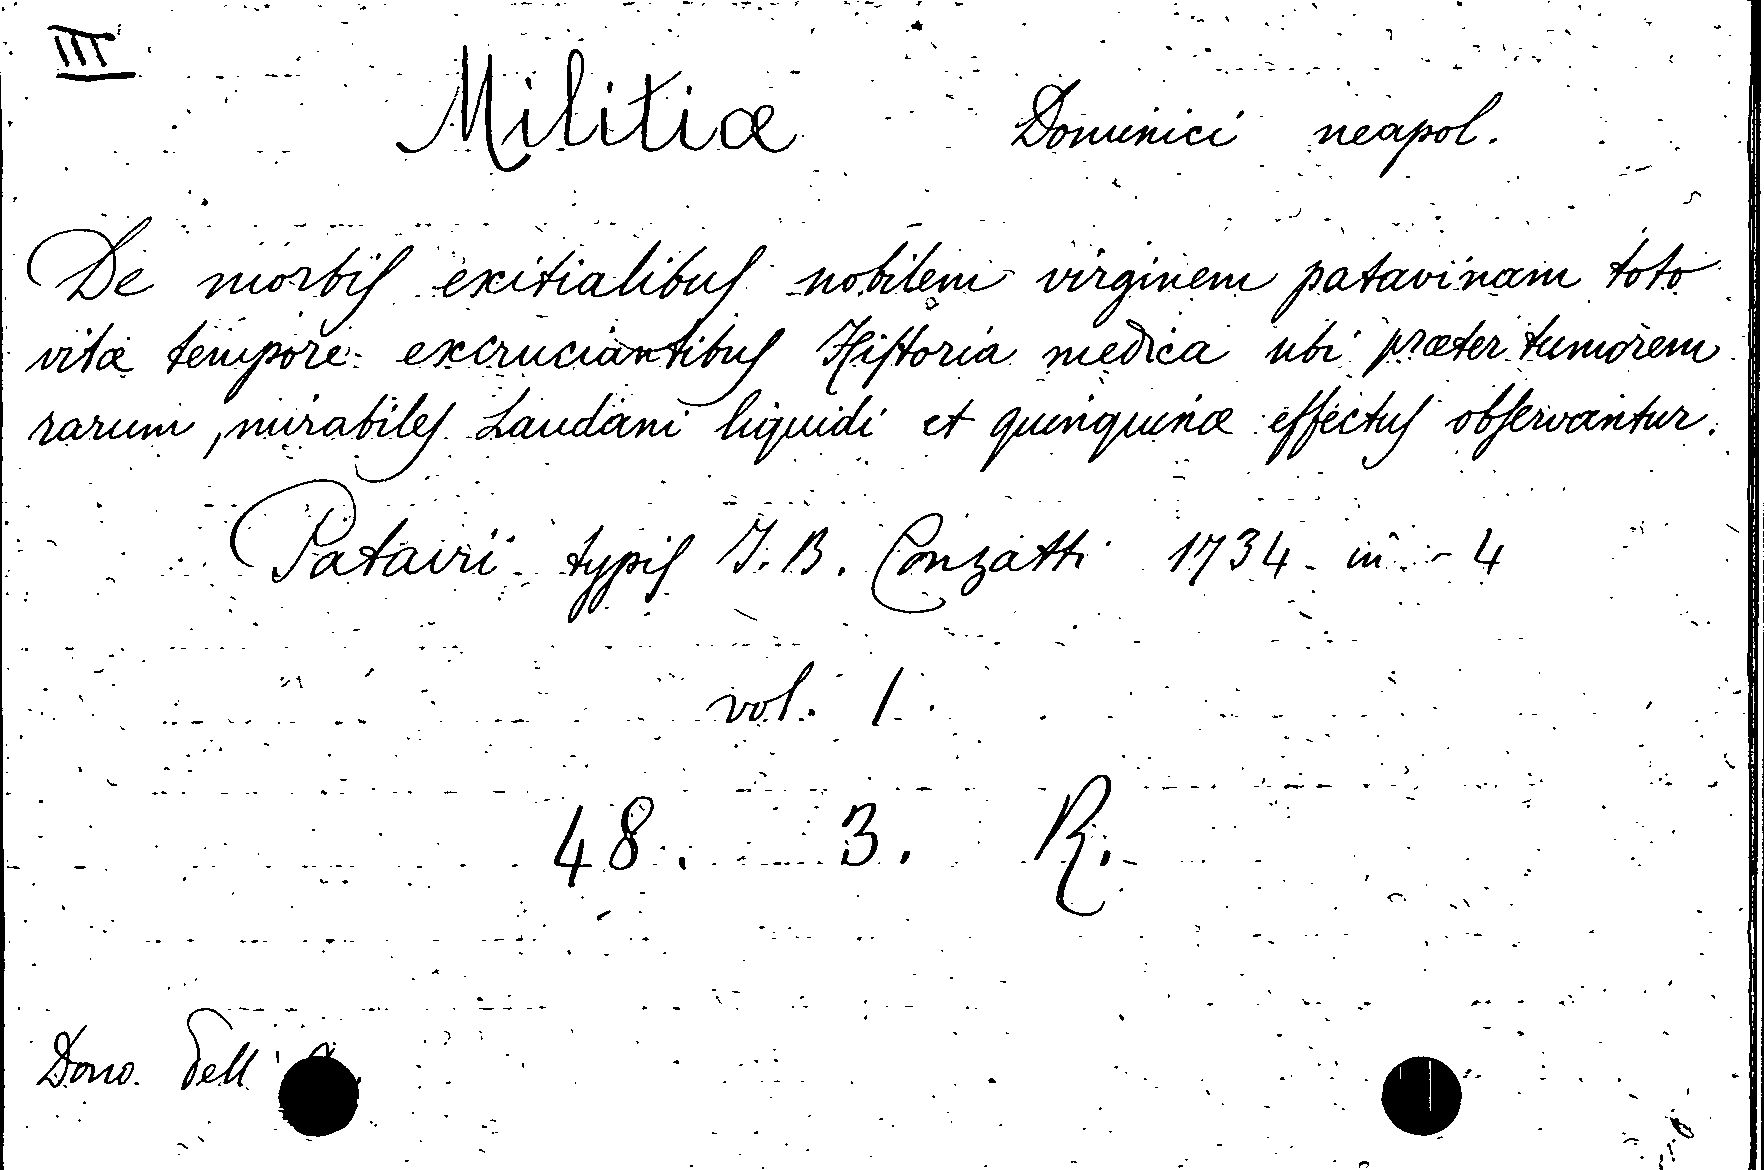 III
Militiæ Dominici neapol.
De morbis exitialibus nobilem virginem patavinam toto
vitæ tempore excruciantibus Historia medica ubi præter tumorem
rarum, mirabiles Laudani liquidi et quinquinæ effectus observantur.
Patavii typis J. B. Conzatti 1734 in - 4
vol. 1.
48. 3. R.
Dono dell'